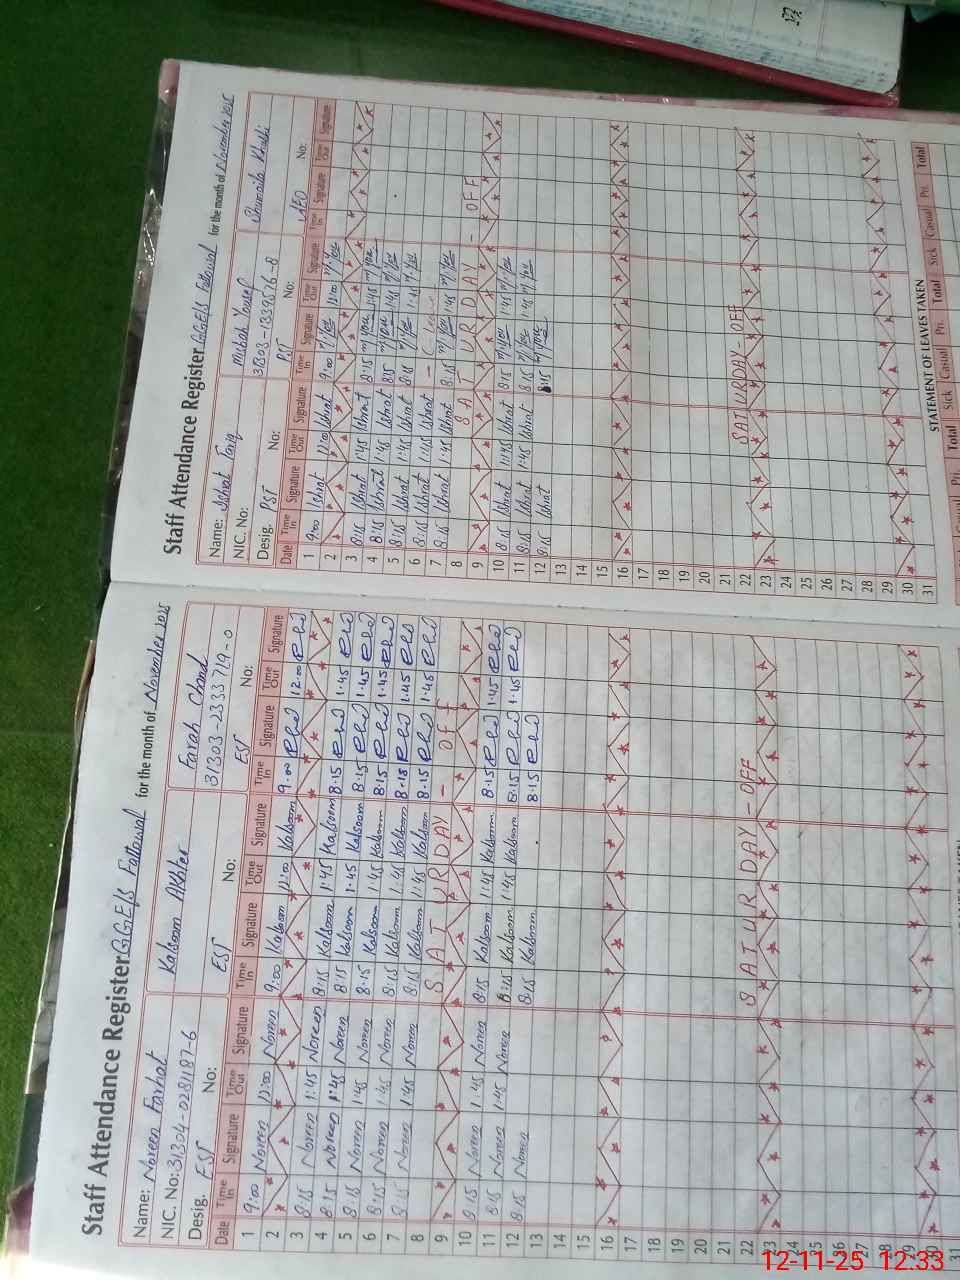 Staff Attendance Register GGE/S Fattowal for the month of November 2025
Name: Noreen Farhat Kalsoom Akhter Farah Chand
NIC. No: 31304-0281187-6 31303-2333719-0
Desig. EST No: EST No: EST No:
Date Time In Signature Time Out Signature Time In Signature Time Out Signature Time In Signature Time Out Signature
1 9:00 Noreen 12:00 Noreen 9:00 Kalsoom 12:00 Kalsoom 9:00 12:00
2
3 8:15 Noreen 1:45 Noreen 8:15 Kalsoom 1:45 Kalsoom 8:15 1:45
4 8:15 Noreen 1:45 Noreen 8:15 Kalsoom 1:45 Kalsoom 8:15 1:45
5 8:15 Noreen 1:45 Noreen 8:15 Kalsoom 1:45 Kalsoom 8:15 1:45
6 8:15 Noreen 1:45 Noreen 8:15 Kalsoom 1:45 Kalsoom 8:15 1:45
7 8:15 Noreen 1:45 Noreen 8:15 Kalsoom 1:45 Kalsoom 8:15 1:45
8 SATURDAY - OFF
9
10 8:15 Noreen 1:45 Noreen 8:15 Kalsoom 1:45 Kalsoom 8:15 1:45
11 8:15 Noreen 1:45 Noreen 8:15 Kalsoom 1:45 Kalsoom 8:15 1:45
12 8:15 Noreen 8:15 Kalsoom 8:15
13
14
15
16
17
18
19
20
21
22 SATURDAY - OFF
23
24
25
26
27
28
29
30
31
Staff Attendance Register GGE/S Fattowal for the month of November 2025
Name: Ishrat Tariq Misbah Yousaf Shumaila
NIC. No: 31303-1339576-8
Desig. PST No: PST No: AEO No:
Date Time In Signature Time Out Signature Time In Signature Time Out Signature Time In Signature Time Out Signature
1 9:00 Ishrat 12:00 Ishrat 9:00 M/You 12:00 M/You
2
3 8:15 Ishrat 1:45 Ishrat 8:15 M/You 1:45 M/You
4 8:15 Ishrat 1:45 Ishrat 8:15 M/You 1:45 M/You
5 8:15 Ishrat 1:45 Ishrat 8:15 M/You 1:45 M/You
6 8:15 Ishrat 1:45 Ishrat - Leave
7 8:15 Ishrat 1:45 Ishrat 8:15 M/You 1:45 M/You
8 SATURDAY - OFF
9
10 8:15 Ishrat 1:45 Ishrat 8:15 M/You 1:45 M/You
11 8:15 Ishrat 1:45 Ishrat 8:15 M/You 1:45 M/You
12 8:15 Ishrat 8:15 M/You
13
14
15
16
17
18
19
20
21
22 SATURDAY - OFF
23
24
25
26
27
28
29
30
31
STATEMENT OF LEAVES TAKEN
Total Sick Casual Pri. Total Sick Casual Pri. Total
12-11-25 12:33